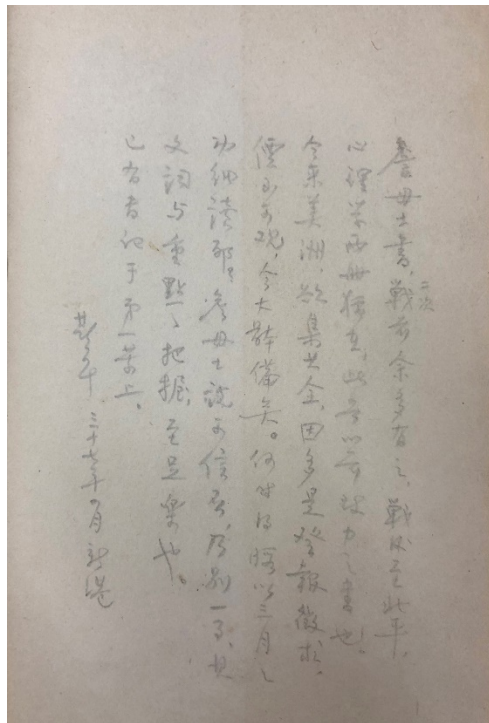 詹母士書，戰前余多有之，戰後至北平，
二次
心理学两册猶在，此吾以前助力之書也！
今來美洲，欲集其全，因多是登報徵求，
價亦可观，今大辞備矣。何時得暇以三月之
功細讀耶？詹母士說可信否，乃别一事，其
文詞与重點之把握，至足樂也。
已有者記于第一葉上。
三十七年 月 新港